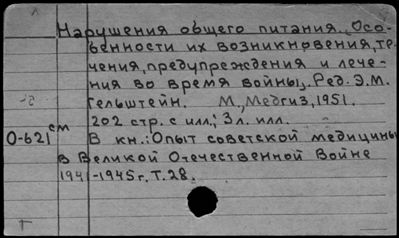 Нарушения общего питания. Осо-
бенности их возникновения, те-
чения, предупреждения и лече-
ния во время войны. Ред. Э.М.
Гельштейн. М., Медгиз, 1951.
202 стр. с илл.; 3 л. илл.
О-621 см
В кн.: Опыт советской медицины
в Великой Отечественной Войне
1941-1945 г. Т. 28.